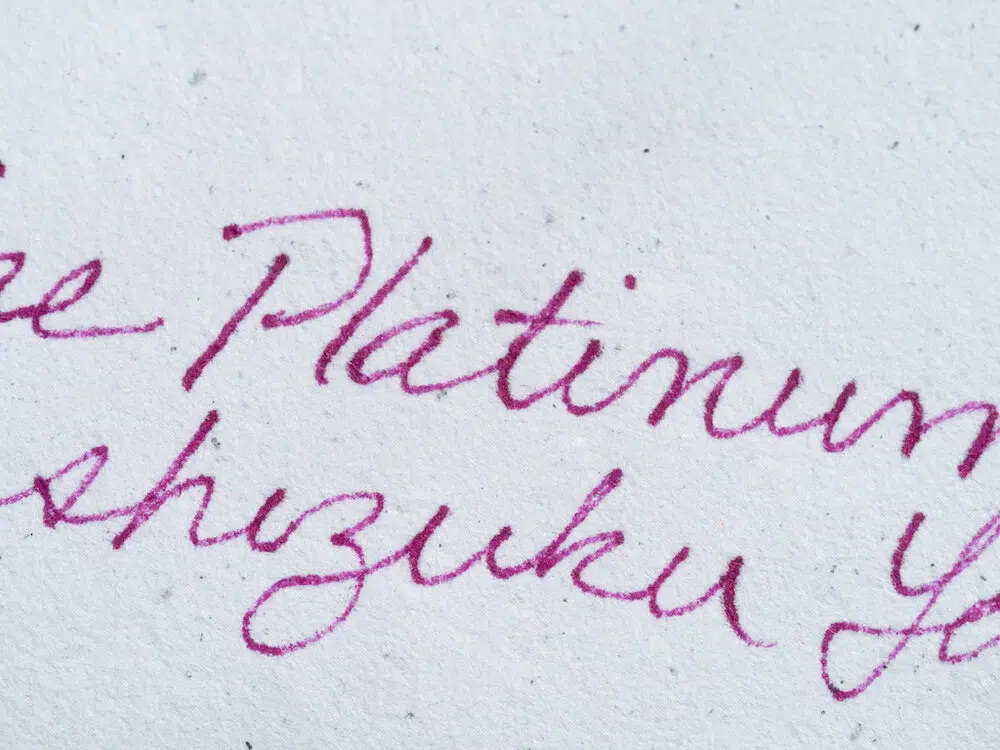 Platinum
shizuku